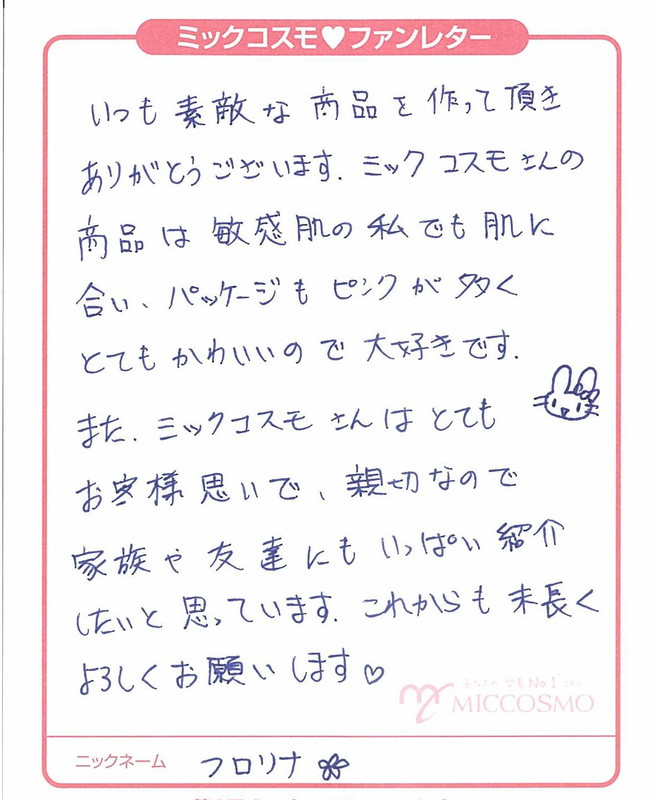 ミックコスモ♥ファンレター
いつも素敵な商品を作って頂き
ありがとうございます. ミックコスモさんの
商品は敏感肌の私でも肌に
合い、パッケージもピンクが多く
とてもかわいいので大好きです.
また. ミックコスモさんはとても
お客様思いで、親切なので
家族や友達にもいっぱい紹介
したいと思っています. これからも末長く
よろしくお願いします♡
No.1
MICCOSMO
ニックネーム フロリナ